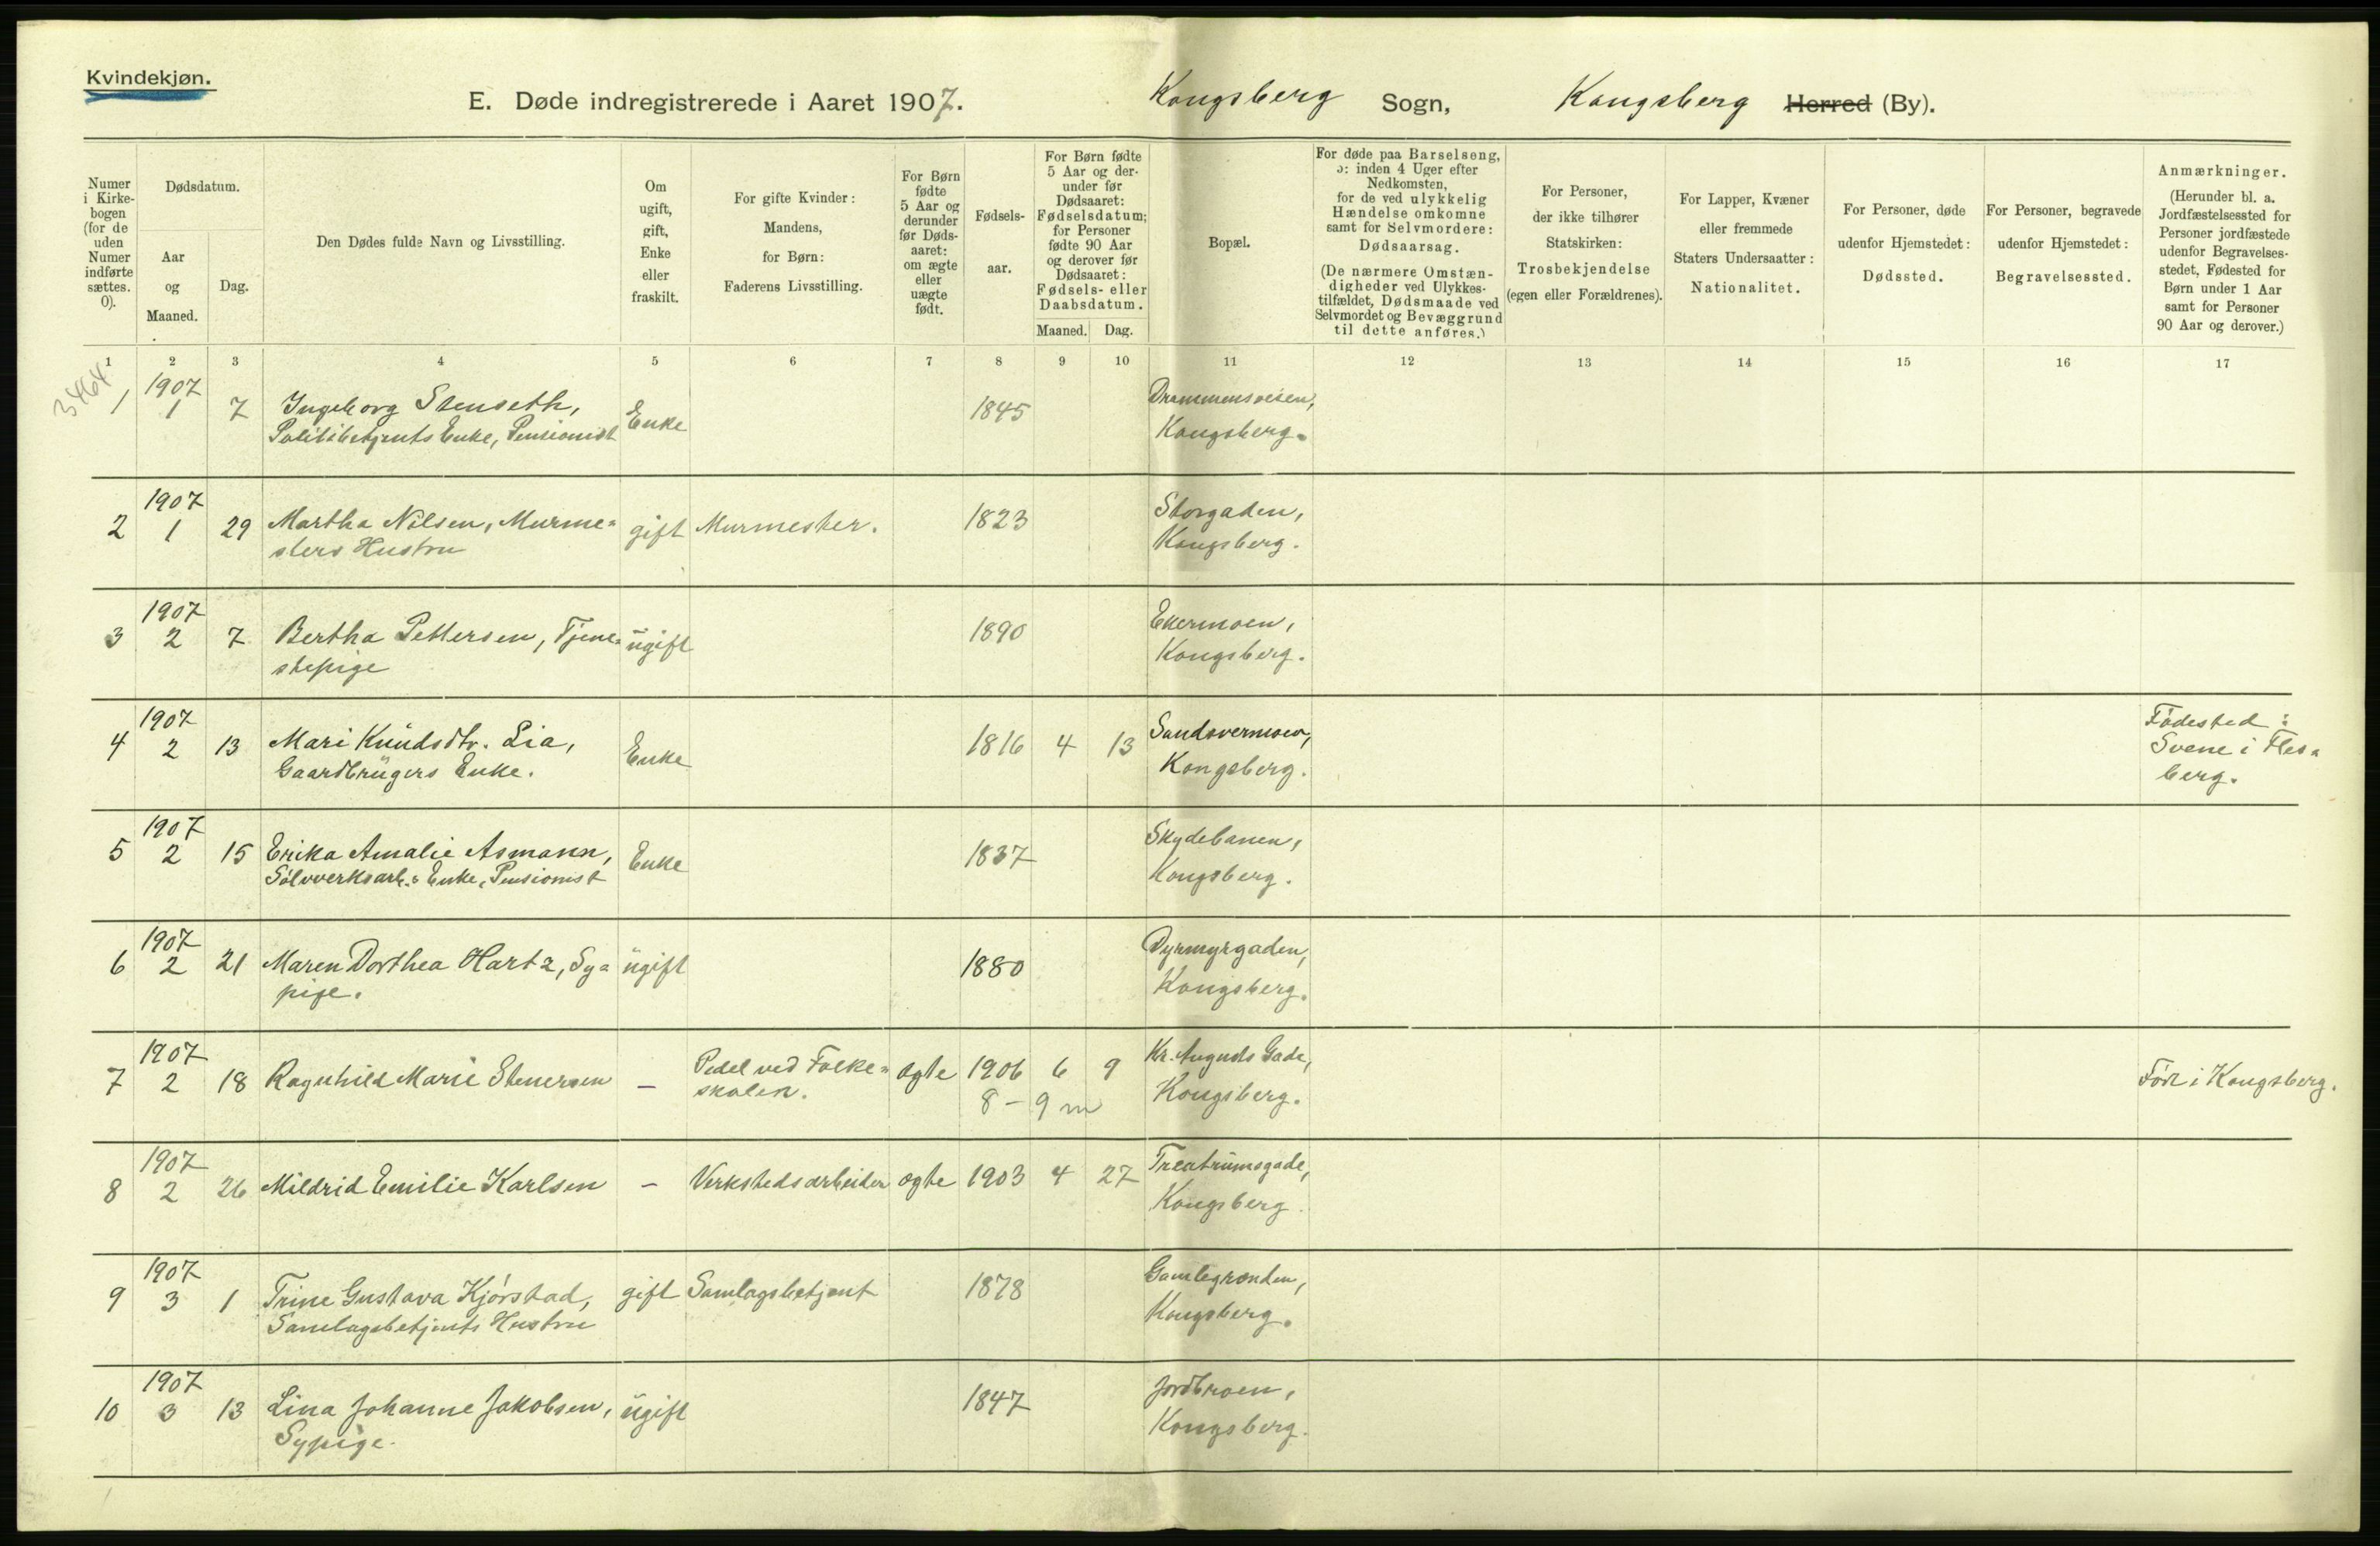 Kvindekjøn.
E. Døde indregistrerede i Aaret 1907. Kongsberg Sogn, Kongsberg Herred (By).
Numer i Kirkebogen (for de uden Numer indførte sættes. 0).
Dødsdatum.
Aar og Maaned.
Dag.
Den Dødes fulde Navn og Livsstilling.
Om ugift, gift, Enke eller fraskilt.
For gifte Kvinder: Mandens, for Børn: Faderens Livsstilling.
For Børn fødte 5 Aar og derunder før Dødsaaret: om ægte eller uægte født.
Fødselsaar.
For Børn fødte 5 Aar og derunder før Dødsaaret: Fødselsdatum; for Personer fødte 90 Aar og derover før Dødsaaret: Fødsels- eller Daabsdatum.
Maaned. Dag.
Bopæl.
For døde paa Barselseng, ɔ: inden 4 Uger efter Nedkomsten, for de ved ulykkelig Hændelse omkomne samt for Selvmordere: Dødsaarsag.
(De nærmere Omstændigheder ved Ulykkestilfældet, Dødsmaade ved Selvmordet og Bevæggrund til dette anføres.)
For Personer, der ikke tilhører Statskirken: Trosbekjendelse (egen eller Forældrenes).
For Lapper, Kvæner eller fremmede Staters Undersaatter: Nationalitet.
For Personer, døde udenfor Hjemstedet: Dødssted.
For Personer, begravede udenfor Hjemstedet: Begravelsessted.
Anmærkninger.
(Herunder bl. a. Jordfæstelsessted for Personer jordfæstede udenfor Begravelsesstedet, Fødested for Børn under 1 Aar samt for Personer 90 Aar og derover.)
1 2 3 4 5 6 7 8 9 10 11 12 13 14 15 16 17
34464
1907
1 1 7 Ingeborg Stenseth, Enke 1845 Drammensveien,
Politibetjents Enke, Pensionist Kongsberg.
1907
2 1 29 Martha Nilsen, Murme= gift Murmester. 1823 Storgaden,
sters Hustru Kongsberg.
1907
3 2 7 Bertha Pettersen, Tjene= ugift 1890 Ekermoen,
stepige Kongsberg.
1907
4 2 13 Mari Knudsdtr. Lia, Enke 1816 4 13 Sandsvermoen, Födested:
Gaardbrugers Enke. Kongsberg. Svene i Fles=
berg.
1907
5 2 15 Erika Amalie Asmann, Enke 1837 Skydebanen,
Sölvverksarb.s Enke, Pensionist Kongsberg.
1907
6 2 21 Maren Dorthea Hartz, Sy= ugift 1880 Dyrmyrgaden,
pige. Kongsberg.
1907
7 2 18 Ragnhild Marie Stenersen – Pedel ved Folke= ægte 1906 6 9 Kr. Augusts Gade, Född i Kongsberg.
skolen. 8 – 9 m Kongsberg.
1907
8 2 26 Mildrid Emilie Karlsen – Verkstedsarbeider ægte 1903 4 27 Treatrumsgade,
Kongsberg.
1907
9 3 1 Trine Gustava Kjörstad, gift Samlagsbetjent 1878 Gamlegrænden,
Samlagsbetjents Hustru Kongsberg.
1907
10 3 13 Lina Johanne Jakobsen, ugift 1847 Jordbroen,
Sypige. Kongsberg.